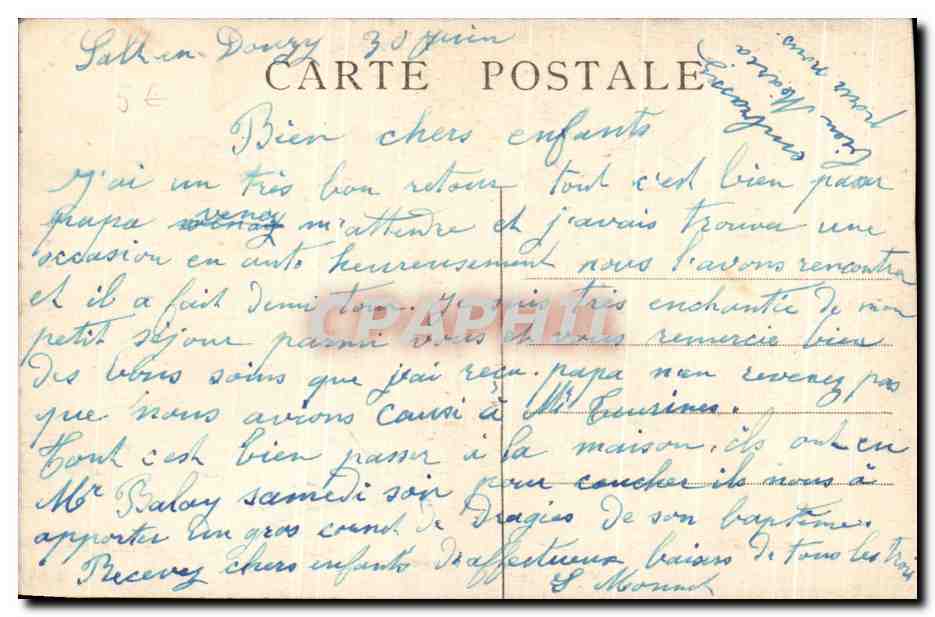 Salt-en-Donzy 30 juin
CARTE POSTALE
5€
Bien chers enfants
J'ai un très bon retour tout c'est bien passer
papa venay m'attendre et j'avais trouva une
occasion en auto heureusement nous l'avons rencontra
et il a fait demi tour. je suis très enchantée de mon
petit séjour parmi vous et vous remercie bien
des bons soins que j'ai reçu. papa n'en revenez pas
que nous avions causi à Mr
Tout c'est bien passer à la maison, ils ont eu
Mr Balay samedi soir pour coucher ils nous à
apporter un gros cornet de dragies de son baptême.
Recevey chers enfants d'affectueux baisers de tous les trois
embrassey
bien Maria
pour nous.
CPAPHIL